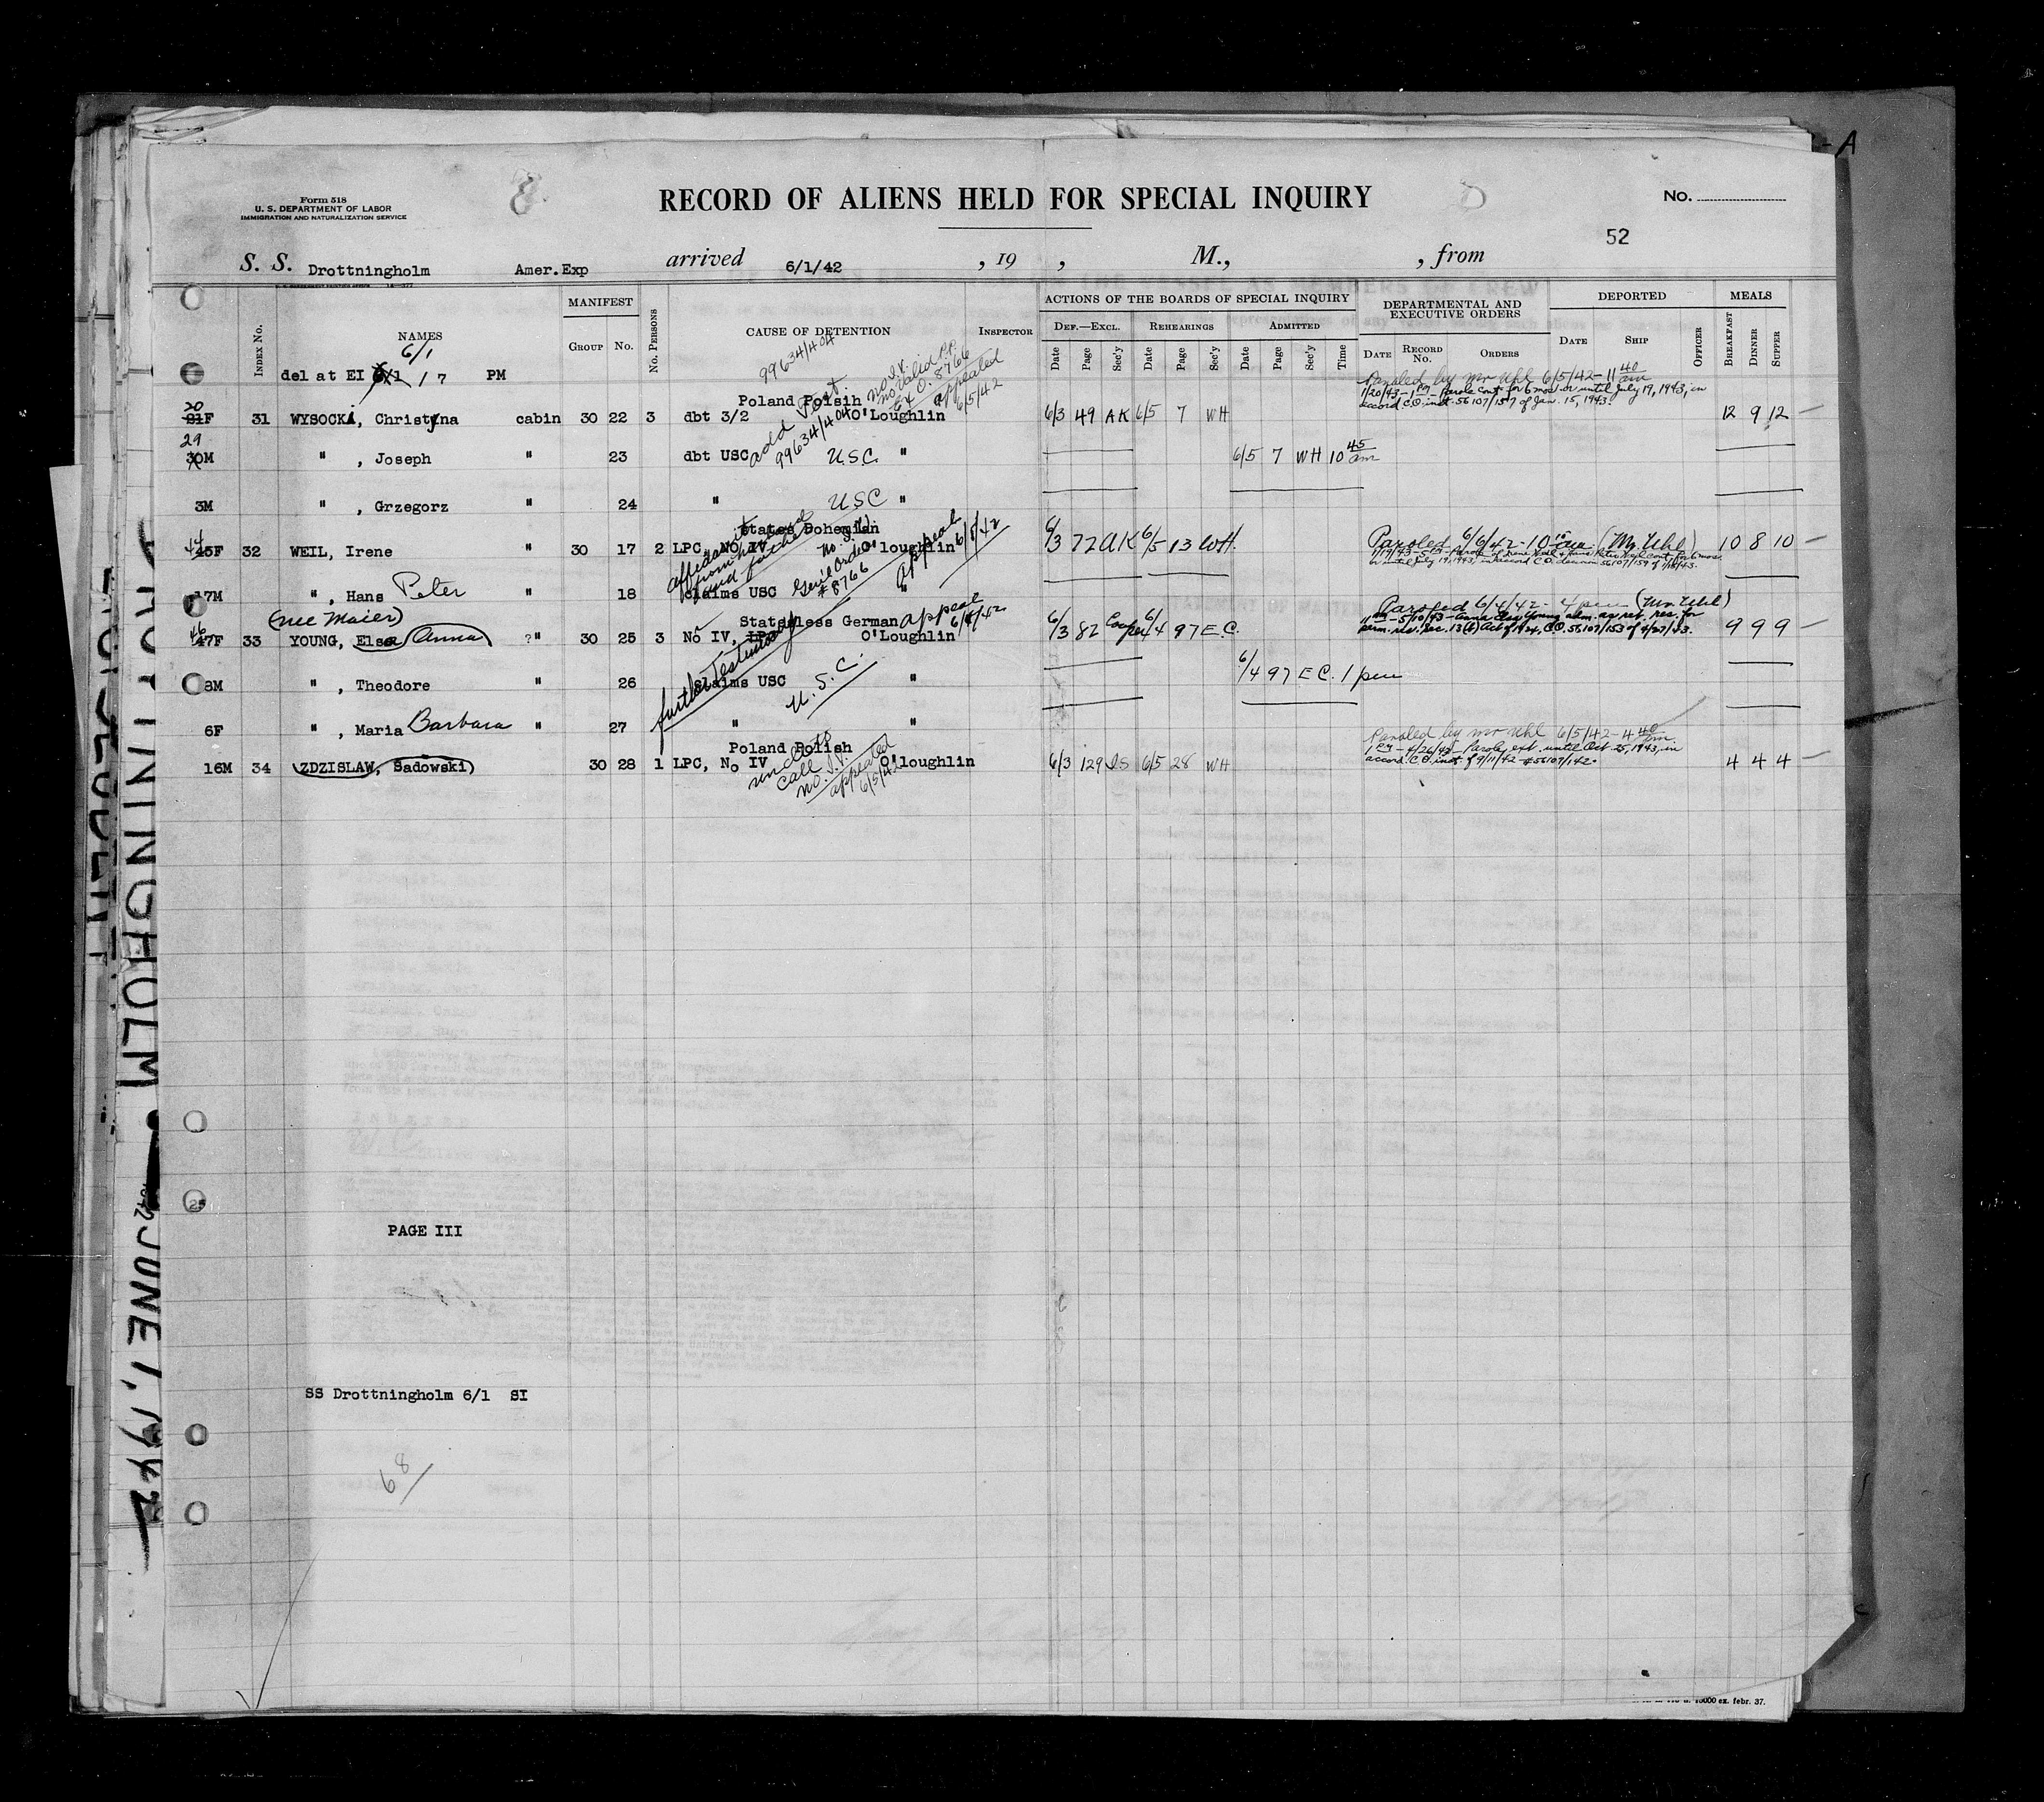 Form 518
U. S. DEPARTMENT OF LABOR
IMMIGRATION AND NATURALIZATION SERVICE
RECORD OF ALIENS HELD FOR SPECIAL INQUIRY
No.
52
- A
S. S. Drottningholm Amer.Exp arrived 6/1/42 , 19 , M., , from
Index No.
NAMES
MANIFEST
Group No.
No. Persons
CAUSE OF DETENTION
Inspector
ACTIONS OF THE BOARDS OF SPECIAL INQUIRY
Def.—Excl. Rehearings Admitted
Date Page Sec'y Date Page Sec'y Date Page Sec'y Time
DEPARTMENTAL AND EXECUTIVE ORDERS
Date Record No. Orders
DEPORTED
Date Ship Officer
MEALS
Breakfast Dinner Supper
6/1
del at EI 6/1 / 7 PM
99634/404
no I.V.
no valid P.P.
Ex. O. 8766
appealed
6/5/42
Paroled by Mr Uhl 6/5/42 - 11 40 am
1/20/43 - 1 PM - Parole cont. for 6 mos. or until July 19, 1943, in
accord. C.O. inst. 56107/157 of Jan. 15, 1943.
Poland Polsih
20
21F 31 WYSOCKi, Christyna cabin 30 22 3 dbt 3/2 O'Loughlin 6/3 49 AK 6/5 7 WH 12 9 12 —
add Test.
99634/404
29
30M " , Joseph " 23 dbt USC U.S.C. " 6/5 7 WH 10 45 am
3M " , Grzegorz " 24 " USC "
States Bohemian
44
45F 32 WEIL, Irene " 30 17 2 LPC, No IV O'loughlin 6/3 72 AK 6/5 13 WH. 10 8 10 —
affidavit
from husband
and father
no I.V.
Gen'l Order
# 8766
appeal
6/5/42
Paroled 6/6/42 - 10 am (Mr. Uhl)
17M " , Hans Peter 18 claims USC "
(nee Maier)
Stateless German appeal 6/4/42
46
47F 33 YOUNG, Elsa Anna ?" 30 25 3 No IV, LPC O'Loughlin 6/3 82 Cooper 6/4 97 E.C. 9 9 9 —
Paroled 6/4/42 - 4 pm (Mr. Uhl)
11 AM - 5/10/43 - Anna Elsa Young adm. as ret. res. for
perm. res. Sec. 13(b) Act of 1924, C.O. 56107/153 of 4/27/43.
further Testimony
8M " , Theodore " 26 Claims USC U.S.C. " 6/4 97 E C. 1 pm
6F " , Maria Barbara " 27 " "
Poland Polish
16M 34 (ZDZISLAW, Sadowski) 30 28 1 LPC, No IV O'loughlin 6/3 129 IS 6/5 28 WH 4 4 4 —
uncle to
call
no I.V.
appealed
6/5/42
Paroled by Mr Uhl 6/5/42 - 4 40 pm.
1 PM - 4/26/43 - Parole ext. until Oct. 25, 1943, in
accord. C.O. inst. of 9/11/42 - #56107/142.
25
PAGE III
SS Drottningholm 6/1 SI
68
DROTTNINGHOLM - 1942 JUNE 1, 1942
10000 ex. febr. 37.